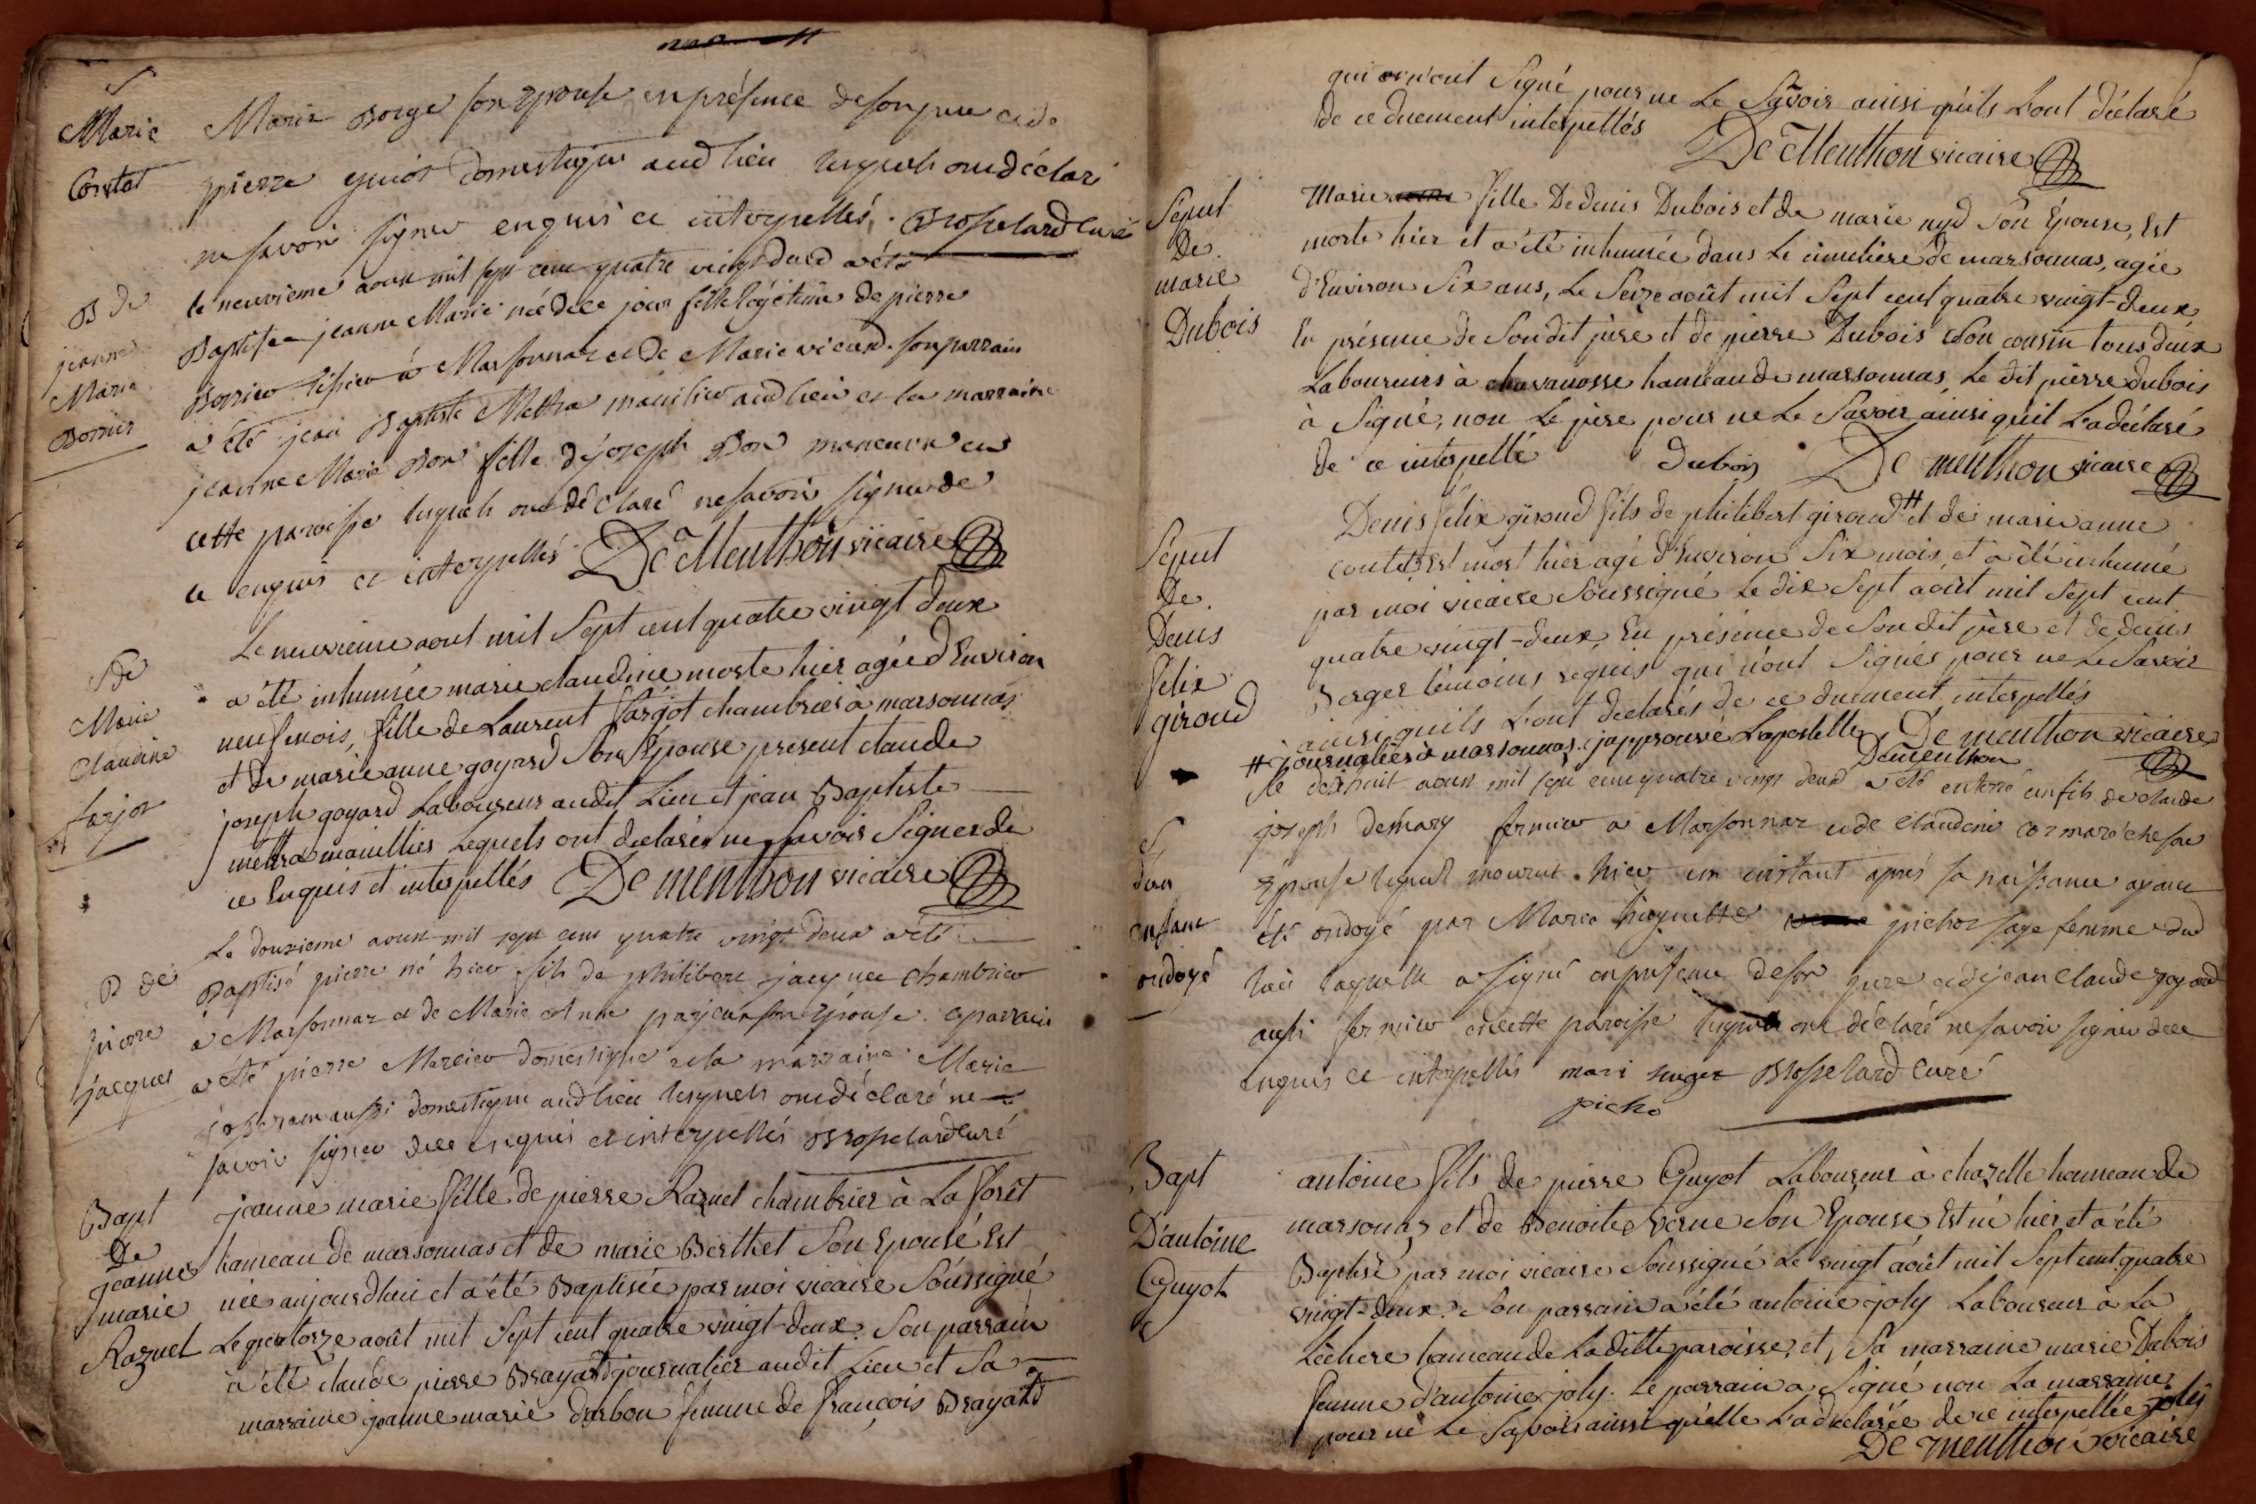 S
Marie
Contat
Marie Borge son Epouse en présence de son pere et de
pierre guiot domestique aud lieu lesquels ont déclaré
ne savoir signer enquis et interpellés. Brosselard curé
B de
jeanne
Marie
Borrier
le neuvieme aoust mil sept cent quatre vingt deux a été
Baptisée jeanne Marie née de ce jour fille légitime de pierre
Borrier à Marsonnaz et de Marie vicard. son parrain
a été jean Baptiste Metra manilier aud lieu et la marraine
jeanne Marie Bon fille de joseph Bon manoeuvre en
cette paroisse lesquels ont déclaré ne savoir signer de
ce enquis et interpellés De Menthon vicaire
S de
Marie
Claudine
farjot
Le neuvieme aout mil Sept cent quatre vingt deux
a été inhumée marie claudine morte hier agée d'Environ
neuf mois, fille de Laurent fargot chambrier à marsonnas
et de marie anne goyard Son Epouse present claude
joseph goyard Laboureur audit Lieu et jean Baptiste
mettra manillier Lequels ont declarés ne Savoir Signer de
ce Enquis et interpellés De menthon vicaire
B de
pierre
jacques
Le douzieme aoust mil sept cent quatre vingt deux a été
Baptisé pierre né hier fils de philibert jacques chambrier
à Marsonnaz et de Marie Anne son Epouse. le parrain
a été pierre Mercier domestique et la marraine Marie
aussi domestique aud lieu lesquels ont déclaré ne
savoir signer de ce enquis et interpellés Brosselard curé
Bapt
De
jeanne
marie
Razuel
jeanne marie fille de pierre Razuel chambrier à La forêt
hameau de marsonnas et de marie Berthet Son Epouse Est
née aujourdhui et a été Baptisée par moi vicaire Soussigné
Le quatorze août mil Sept cent quatre vingt-deux. Son parrain
a été claude pierre Brayard journalier audit Lieu et Sa
marraine jeanne marie darbon femme de françois Brayard
qui n'ont Signé pour ne Le Savoir ainsi qu'ils L'ont déclaré
de ce duement interpellés De Menthon vicaire
Sepul
De
marie
Dubois
Marie fille De denis Dubois et de marie nyd Son Epouse, Est
morte hier et a été inhumée dans Le cimetiere de marsonnas, agée
d'Environ Six ans, Le Seize août mil Sept cent quatre vingt-deux
En présence de Son dit père et de pierre Dubois Son cousin tous deux
Laboureurs à chavanosse hameau de marsonnas, Le dit pierre dubois
à Signé, non Le père pour ne Le Savoir ainsi quil L'a déclaré
de ce interpellé Dubois De menthon vicaire
Sepul
De
Denis
felix
giroud
Denis felix giroud fils de philibert giroud # et de marie anne
contet Est mort hier agé d'Environ Six mois, et a été inhumé
par moi vicaire Soussigné Le dix Sept août mil Sept cent
quatre vingt-deux, En présence de Son dit père et de denis
Berger témoins requis qui n'ont Signés pour ne Le Savoir
ainsi quils L'ont declarés de ce duement interpellés
# journalier à marsonnas. japprouve Lapostelle De menthon vicaire
Dementhon
S
d'un
enfant
ondoyé
le dix huit aoust mil sept cent quatre vingt deux a été enterré un fils de claude
joseph démary fermier à Marsonnaz et de Claudine cormareche sa
Epouse lequel mourut hier un instant aprés sa naissance ayant
été ondoyé par Marie huguette pichot sage femme dud
lieu laquelle a signé en présence de son pere et de jean Claude goyard
aussi fermier en cette paroisse lesquels ont déclaré ne savoir signer de ce
enquis et interpellés mari huget Brosselard Curé
picho
Bapt
D'antoine
Guyot
antoine fils de pierre Guyot Laboureur à chazelle hameau de
marsonas et de Benoite verne Son Epouse Est né hier et a été
Baptisé par moi vicaire Soussigné Le vingt août mil Sept cent quatre
vingt-deux. Son parrain a été antoine joly Laboureur à La
Lechere hameau de La ditte paroisse, et, Sa marraine marie Dubois
femme d'antoine joly. Le parrain a Signé non La marraine
pour ne Le Savoir ainsi qu'elle L'a declarée de ce interpellée joly
De menthon vicaire